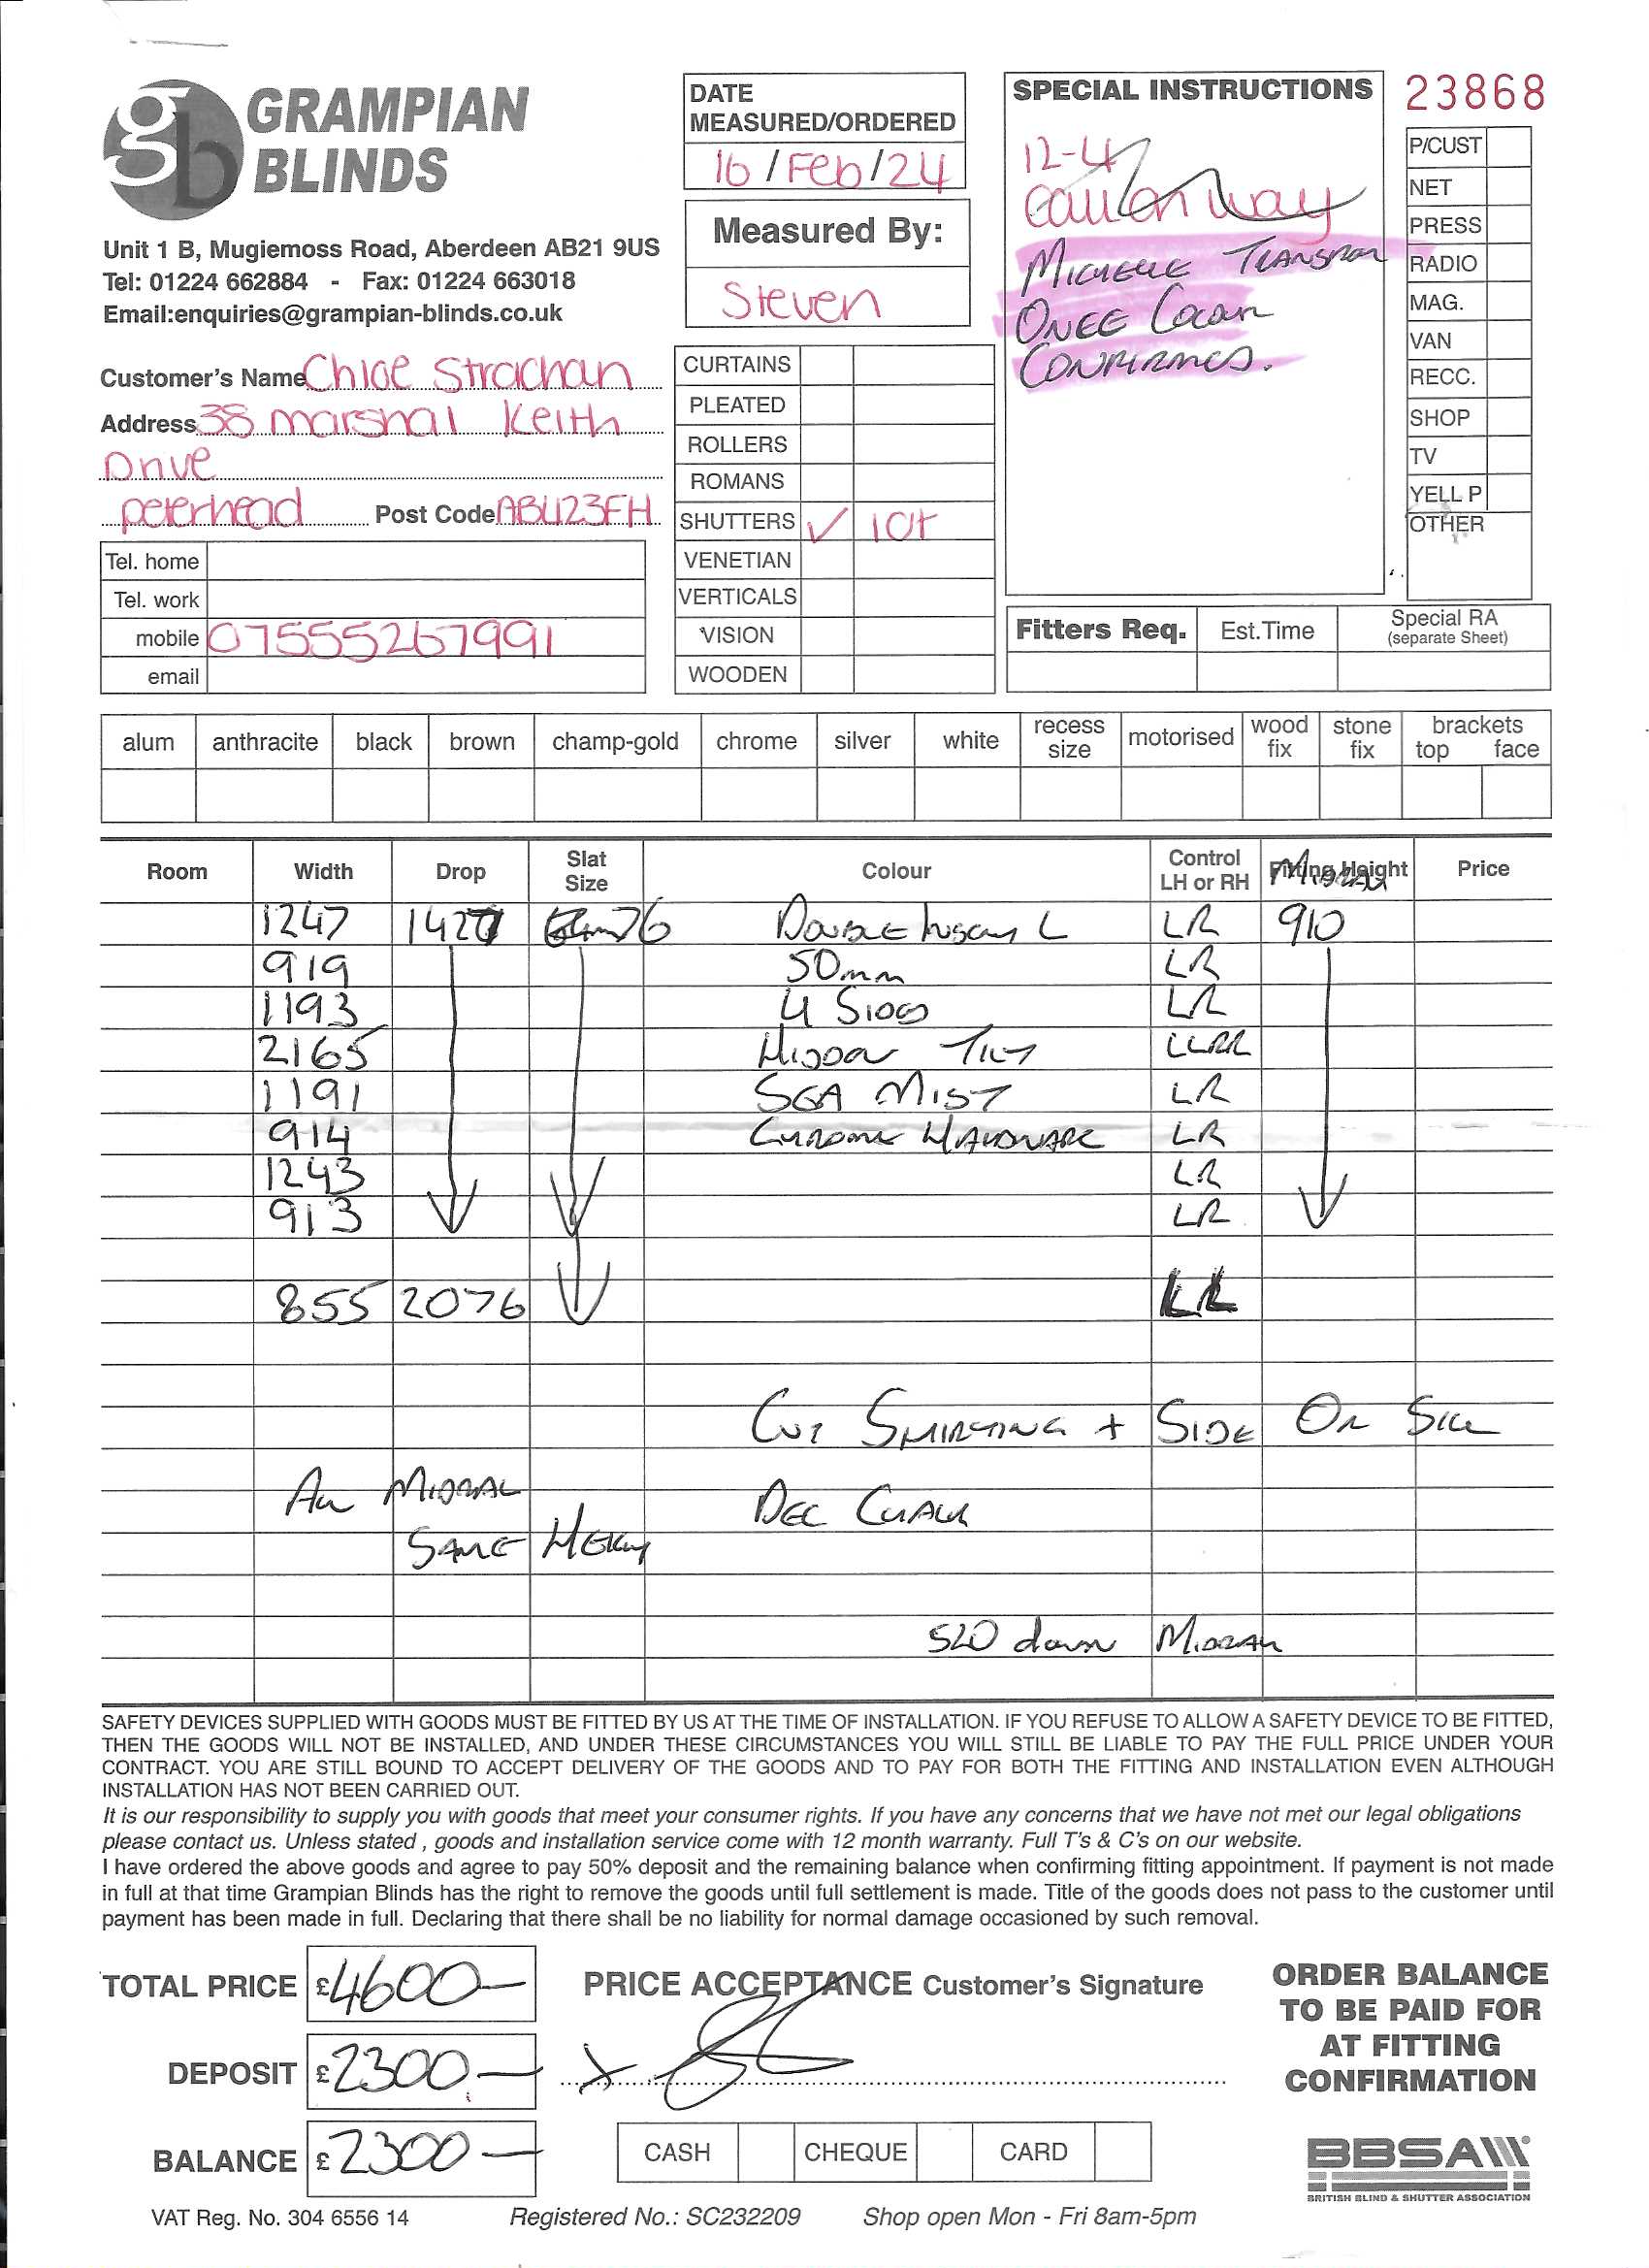 GRAMPIAN
BLINDS
Unit 1 B, Mugiemoss Road, Aberdeen AB21 9US
Tel: 01224 662884 - Fax: 01224 663018
Email:enquiries@grampian-blinds.co.uk
DATE
MEASURED/ORDERED
16 / Feb / 24
Measured By:
Steven
SPECIAL INSTRUCTIONS
12-4
call on way
MICHELLE
ONCE COLOUR
CONFIRMED.
23868
P/CUST
NET
PRESS
RADIO
MAG.
VAN
RECC.
SHOP
TV
YELL P
OTHER
Customer's Name Chloe Strachan
Address 38 marshal Keith
Drive
peterhead Post Code AB423FH
Tel. home
Tel. work
mobile 07555267991
email
CURTAINS
PLEATED
ROLLERS
ROMANS
SHUTTERS ✓ 10+
VENETIAN
VERTICALS
VISION
WOODEN
Fitters Req. Est.Time Special RA
(separate Sheet)
alum anthracite black brown champ-gold chrome silver white recess size motorised wood fix stone fix brackets top face
Room Width Drop Slat Size Colour Control LH or RH Fitting Height Price
MIDRAIL
1247 1427 76 DOUBLE L LR 910
919 50mm LR
1193 4 SIDES LR
2165 HIDDEN TILT LLRR
1191 SEA MIST LR
914 CHROME HARDWARE LR
1243 LR
913 LR
855 2076
CUT SKIRTING + SIDE OR SILL
ALL MIDRAIL DEC CHALK
SAME HEIGHT
520 down MIDRAIL
SAFETY DEVICES SUPPLIED WITH GOODS MUST BE FITTED BY US AT THE TIME OF INSTALLATION. IF YOU REFUSE TO ALLOW A SAFETY DEVICE TO BE FITTED,
THEN THE GOODS WILL NOT BE INSTALLED, AND UNDER THESE CIRCUMSTANCES YOU WILL STILL BE LIABLE TO PAY THE FULL PRICE UNDER YOUR
CONTRACT. YOU ARE STILL BOUND TO ACCEPT DELIVERY OF THE GOODS AND TO PAY FOR BOTH THE FITTING AND INSTALLATION EVEN ALTHOUGH
INSTALLATION HAS NOT BEEN CARRIED OUT.
It is our responsibility to supply you with goods that meet your consumer rights. If you have any concerns that we have not met our legal obligations
please contact us. Unless stated , goods and installation service come with 12 month warranty. Full T's & C's on our website.
I have ordered the above goods and agree to pay 50% deposit and the remaining balance when confirming fitting appointment. If payment is not made
in full at that time Grampian Blinds has the right to remove the goods until full settlement is made. Title of the goods does not pass to the customer until
payment has been made in full. Declaring that there shall be no liability for normal damage occasioned by such removal.
TOTAL PRICE £4600—
DEPOSIT £2300.—
BALANCE £2300—
PRICE ACCEPTANCE Customer's Signature
x
CASH CHEQUE CARD
ORDER BALANCE
TO BE PAID FOR
AT FITTING
CONFIRMATION
BBSA
BRITISH BLIND & SHUTTER ASSOCIATION
VAT Reg. No. 304 6556 14 Registered No.: SC232209 Shop open Mon - Fri 8am-5pm